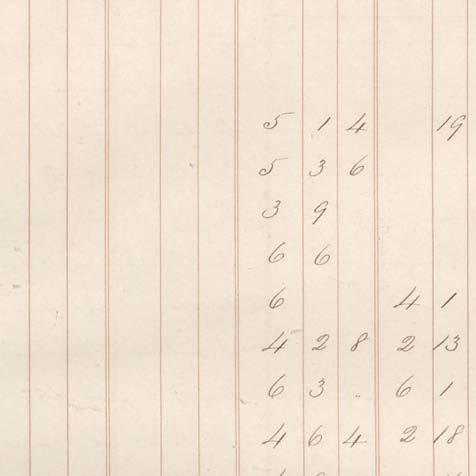 5 1 4 19
5 3 6
3 9
6 6
6 4 1
4 2 8 2 13
6 3 .. 6 1
4 6 4 2 18